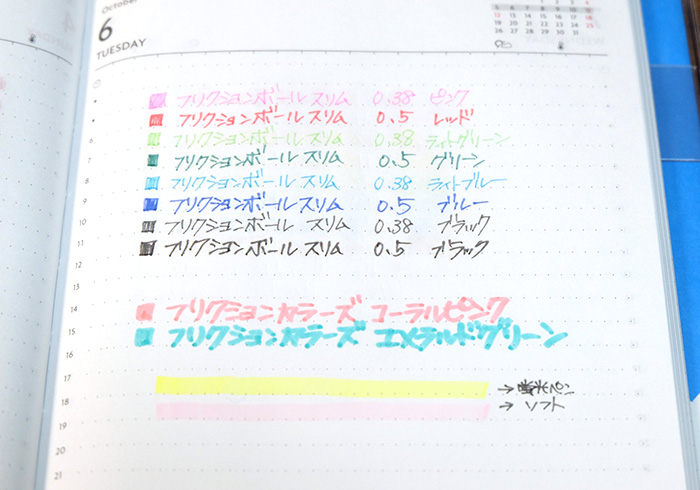 October
6
TUESDAY
フリクションボールスリム 0.38 ピンク
フリクションボールスリム 0.5 レッド
フリクションボールスリム 0.38 ライトグリーン
フリクションボールスリム 0.5 グリーン
フリクションボールスリム 0.38 ライトブルー
フリクションボールスリム 0.5 ブルー
フリクションボールスリム 0.38 ブラック
フリクションボールスリム 0.5 ブラック
フリクションカラーズ コーラルピンク
フリクションカラーズ エメラルドグリーン
→蛍光ペン
→ソフト
6
7
8
9
10
11
12
14
15
16
17
18
19
20
21
5 6 7 8 9 10 11
12 13 14 15 16 17 18
19 20 21 22 23 24 25
26 27 28 29 30 31